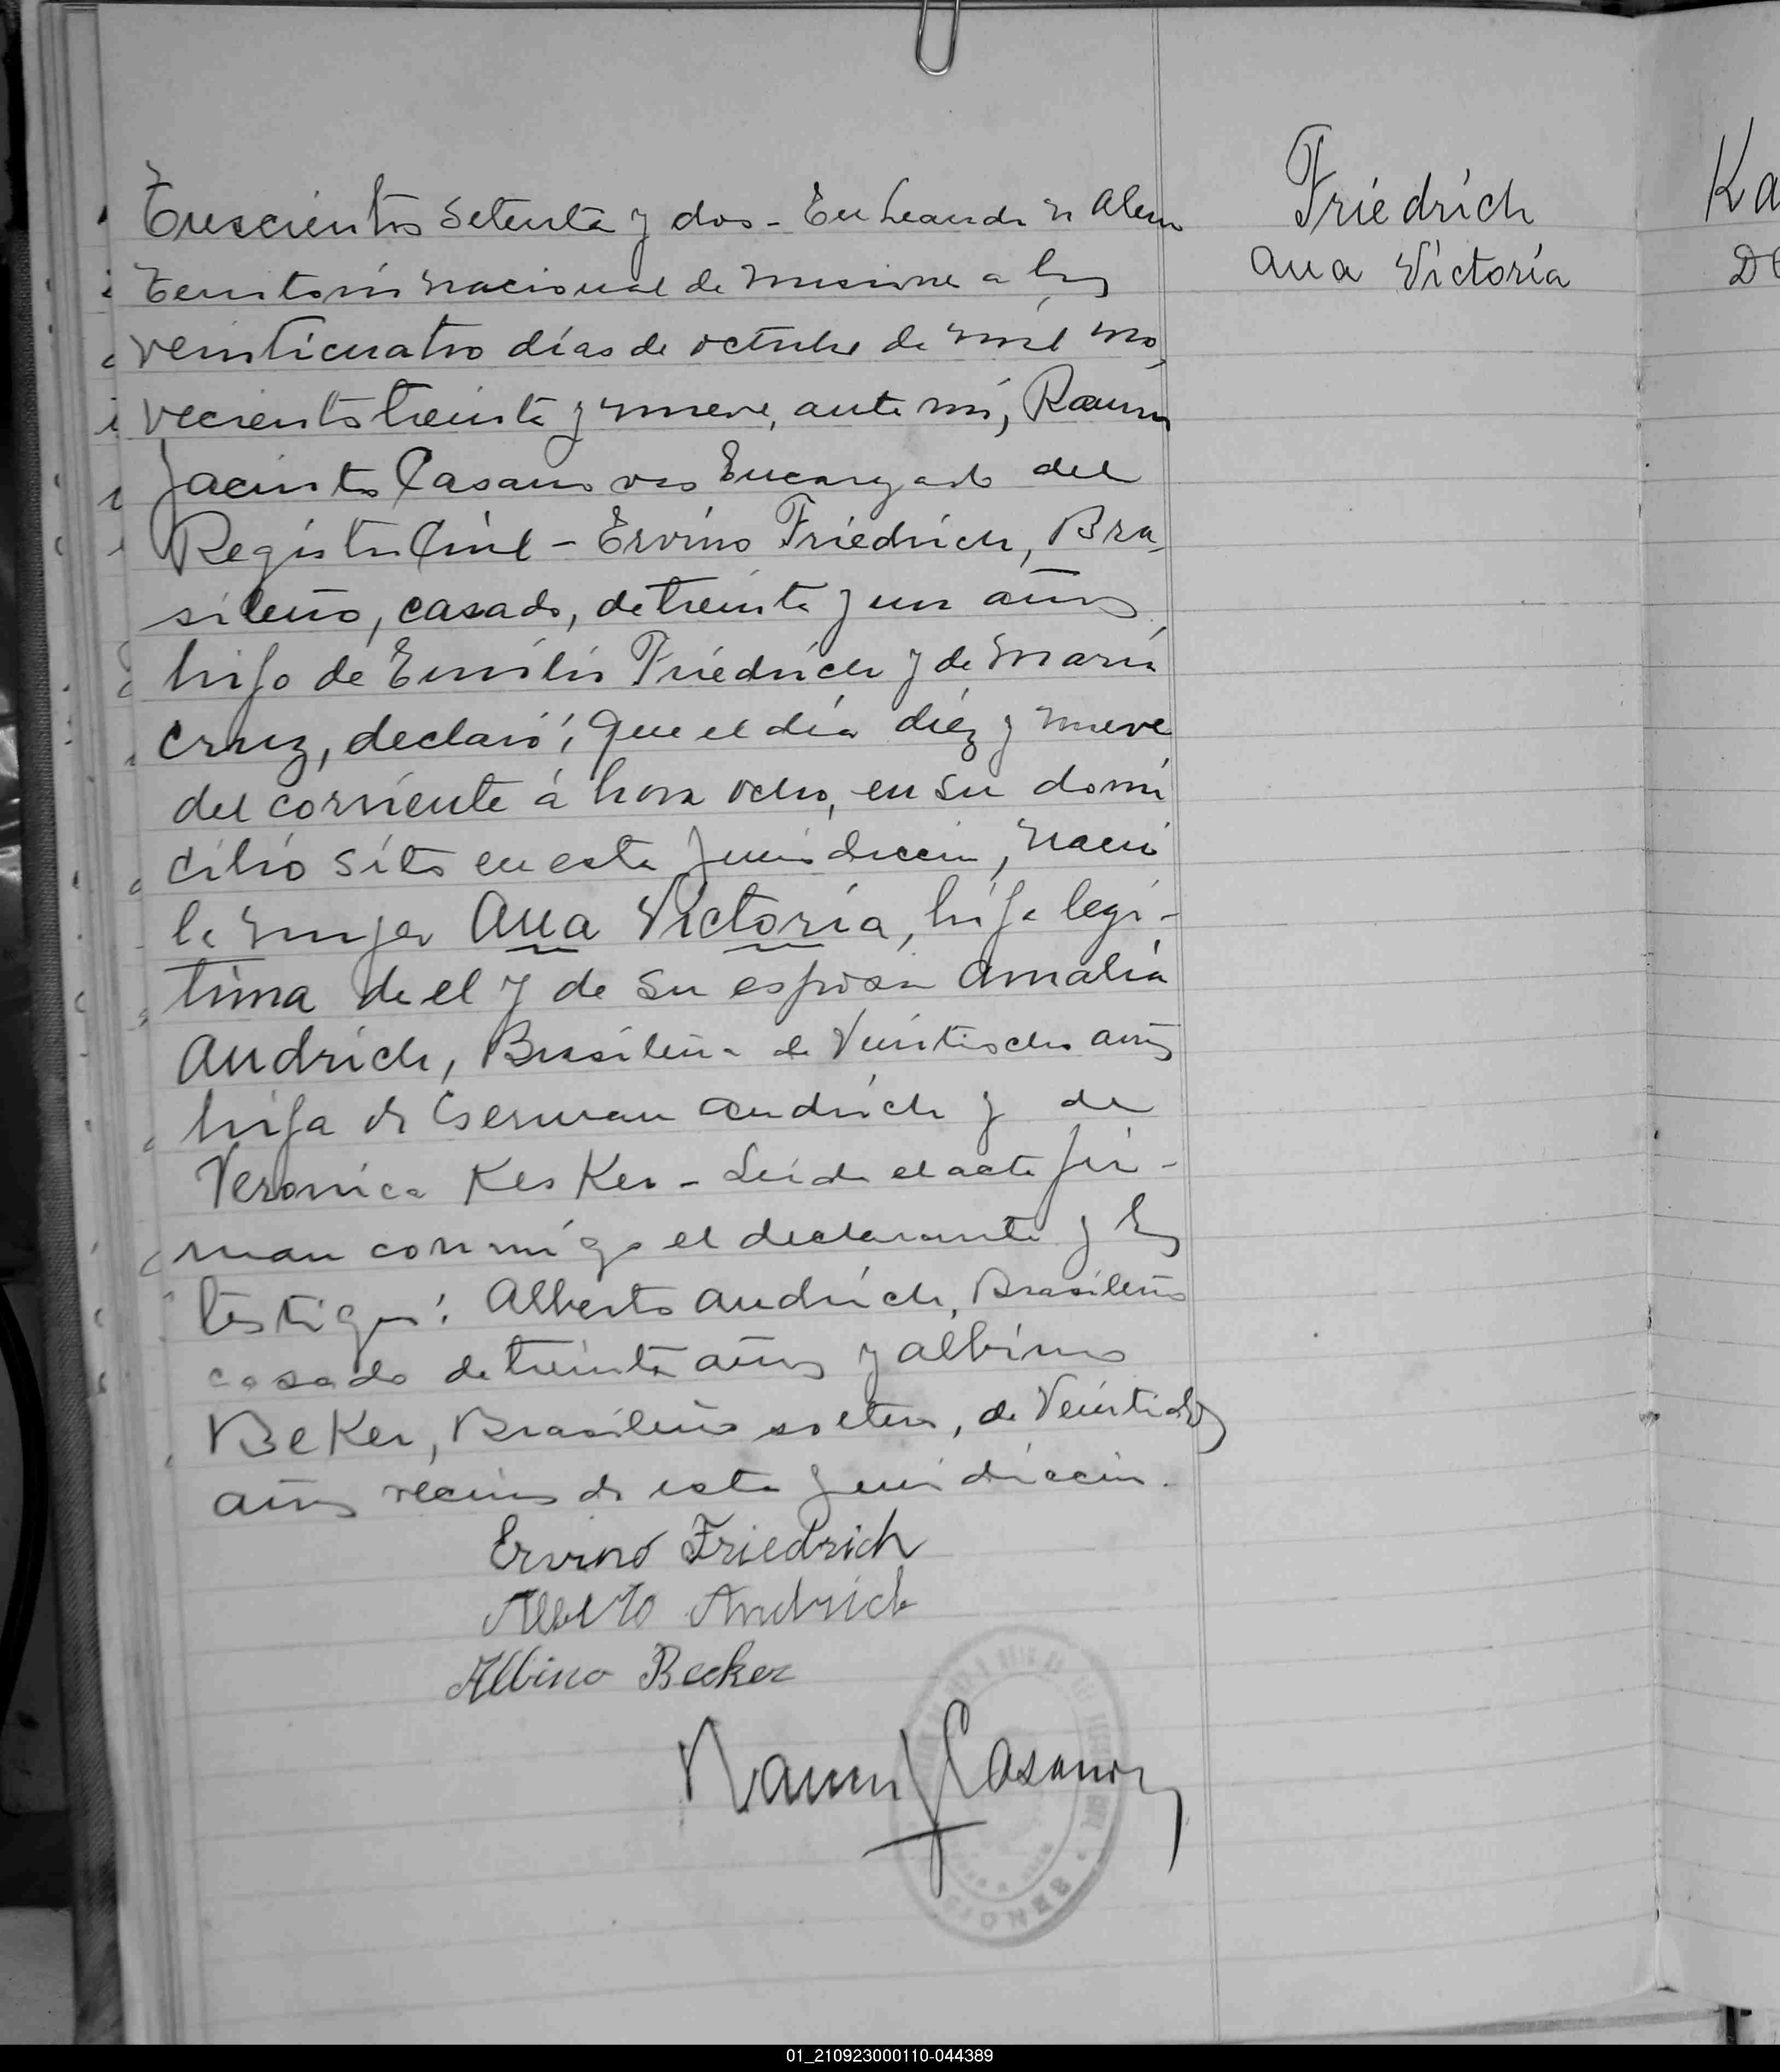 Trescientos setenta y dos - En Leandro N Alem
Territorio Nacional de Misiones a los
veinticuatro días de octubre de mil no,
vecientos treinta y nueve, ante mí, Ramon
Jacinto Casanovas Encargado del
Registro Civil - Ervino Friedrich, Bra,
sileño, casado, de treinta y un años,
hijo de Emilio Friedrich y de María
Cruz, declaró; que el día diéz y nueve
del corriente á hora ocho, en su domi
cilio sito en esta Jurisdiccion, nació
la mujer Ana Victoria, hija legi-
tima de el y de su esposa Amalia
Andrich, Brasileña de Veintiocho años
hija de German Andrich y de
Veronica Kes Ker - Leida el acta fir-
man conmígo el declarante y los
testigos: Alberto Andrich, Brasileño
casado de treinta años y Albino
BeKer, Brasileño soltero, de Veintidos
años vecinos de esta Jurisdiccion.
Ervino Friedrich
Alberto Andrich
Albino Becker
Ramon J Casanovas
Friedrich
Ana Victoria
Ka
MISIONES
01_210923000110-044389